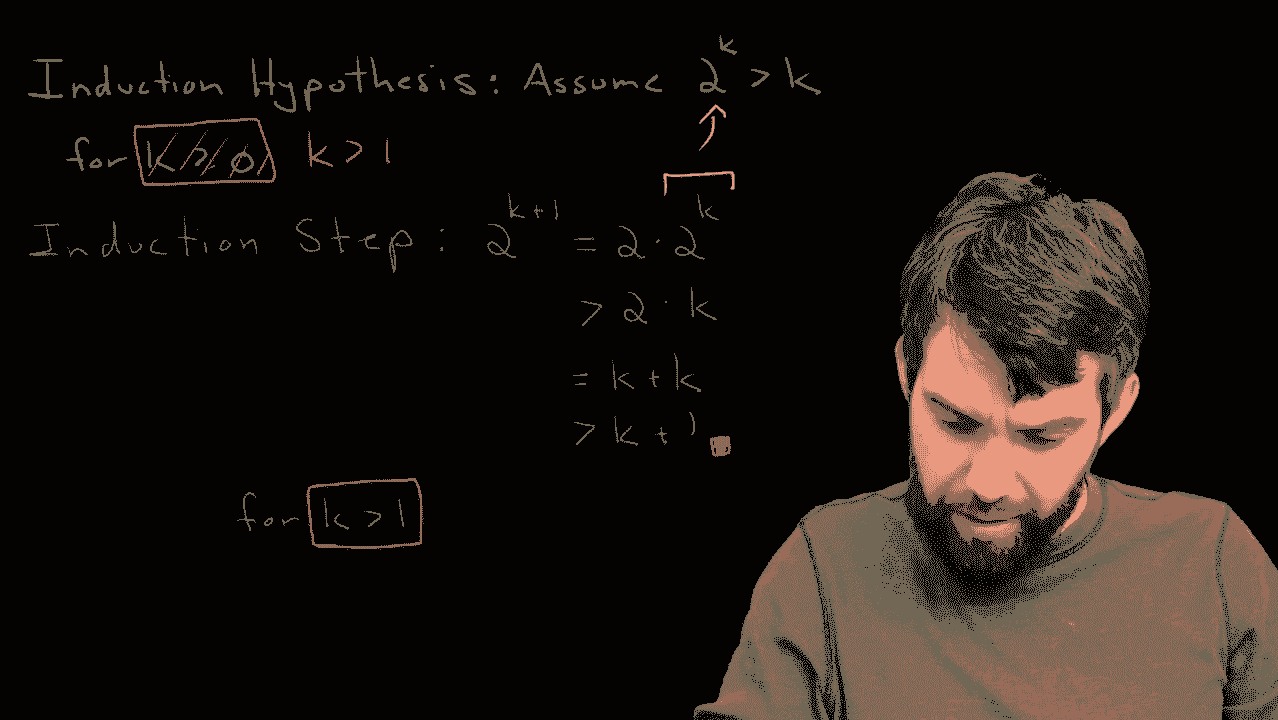 Induction Hypothesis: Assume 2^k > k
for k ≥ 0 k > 1
Induction Step: 2^{k+1} = 2 · 2^k
> 2 · k
= k + k
> k + 1
for k > 1